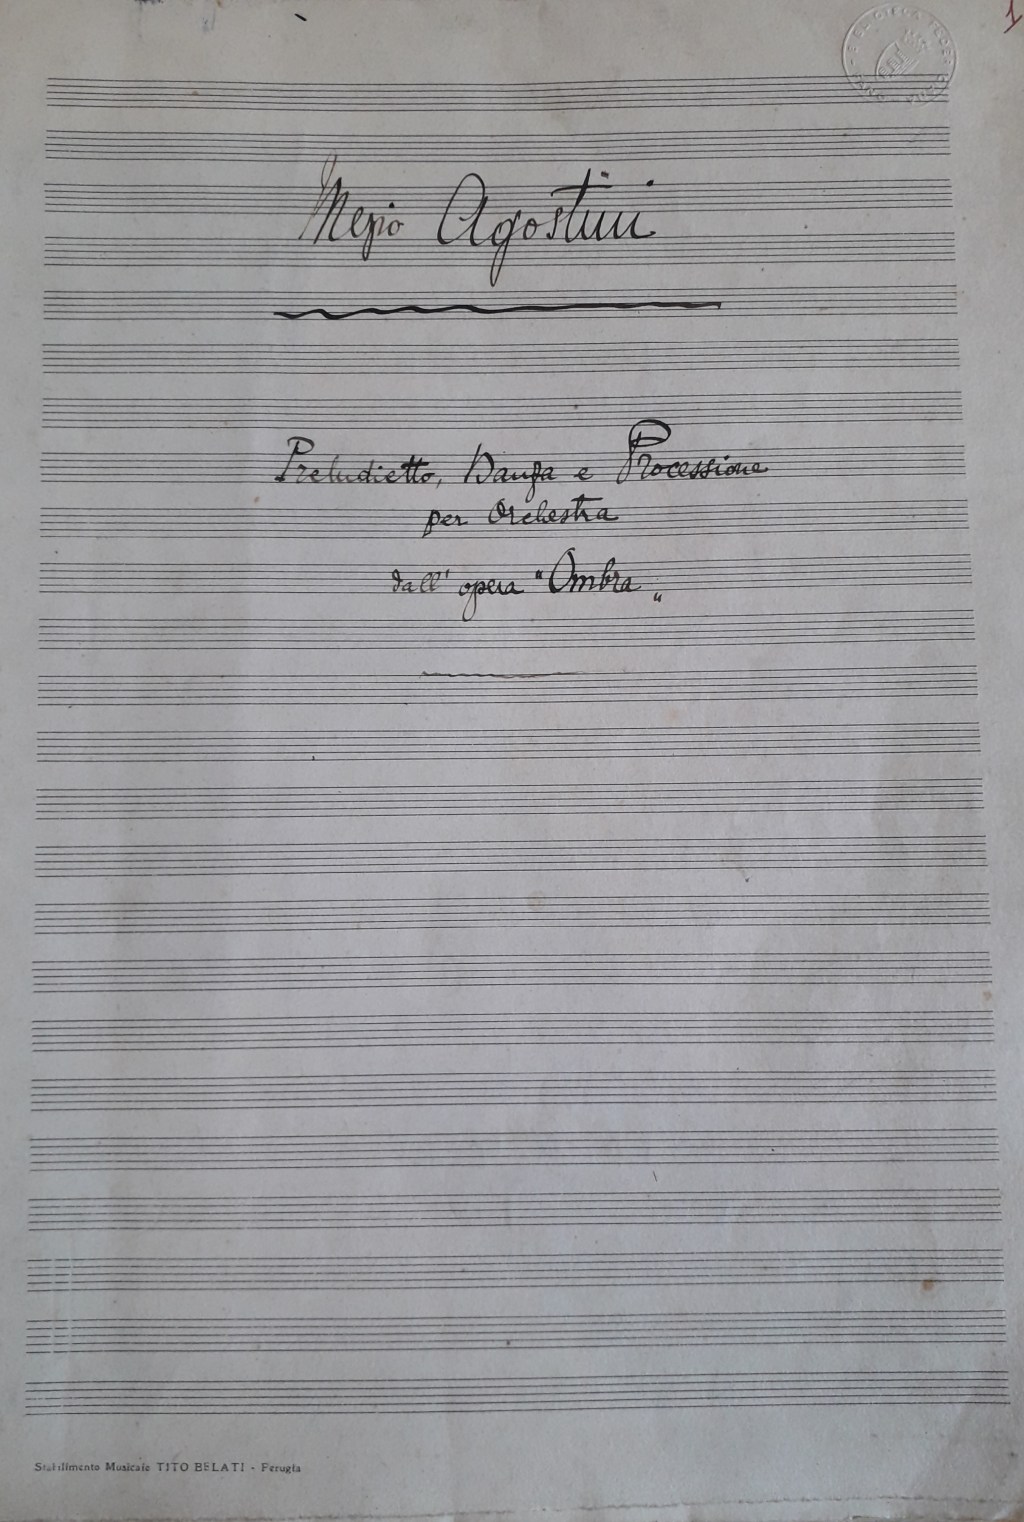 1
Mezio Agostini
Preludietto, Danza e Processione
per Orchestra
dall' opera "Ombra„
Stabilimento Musicale TITO BELATI - Perugia